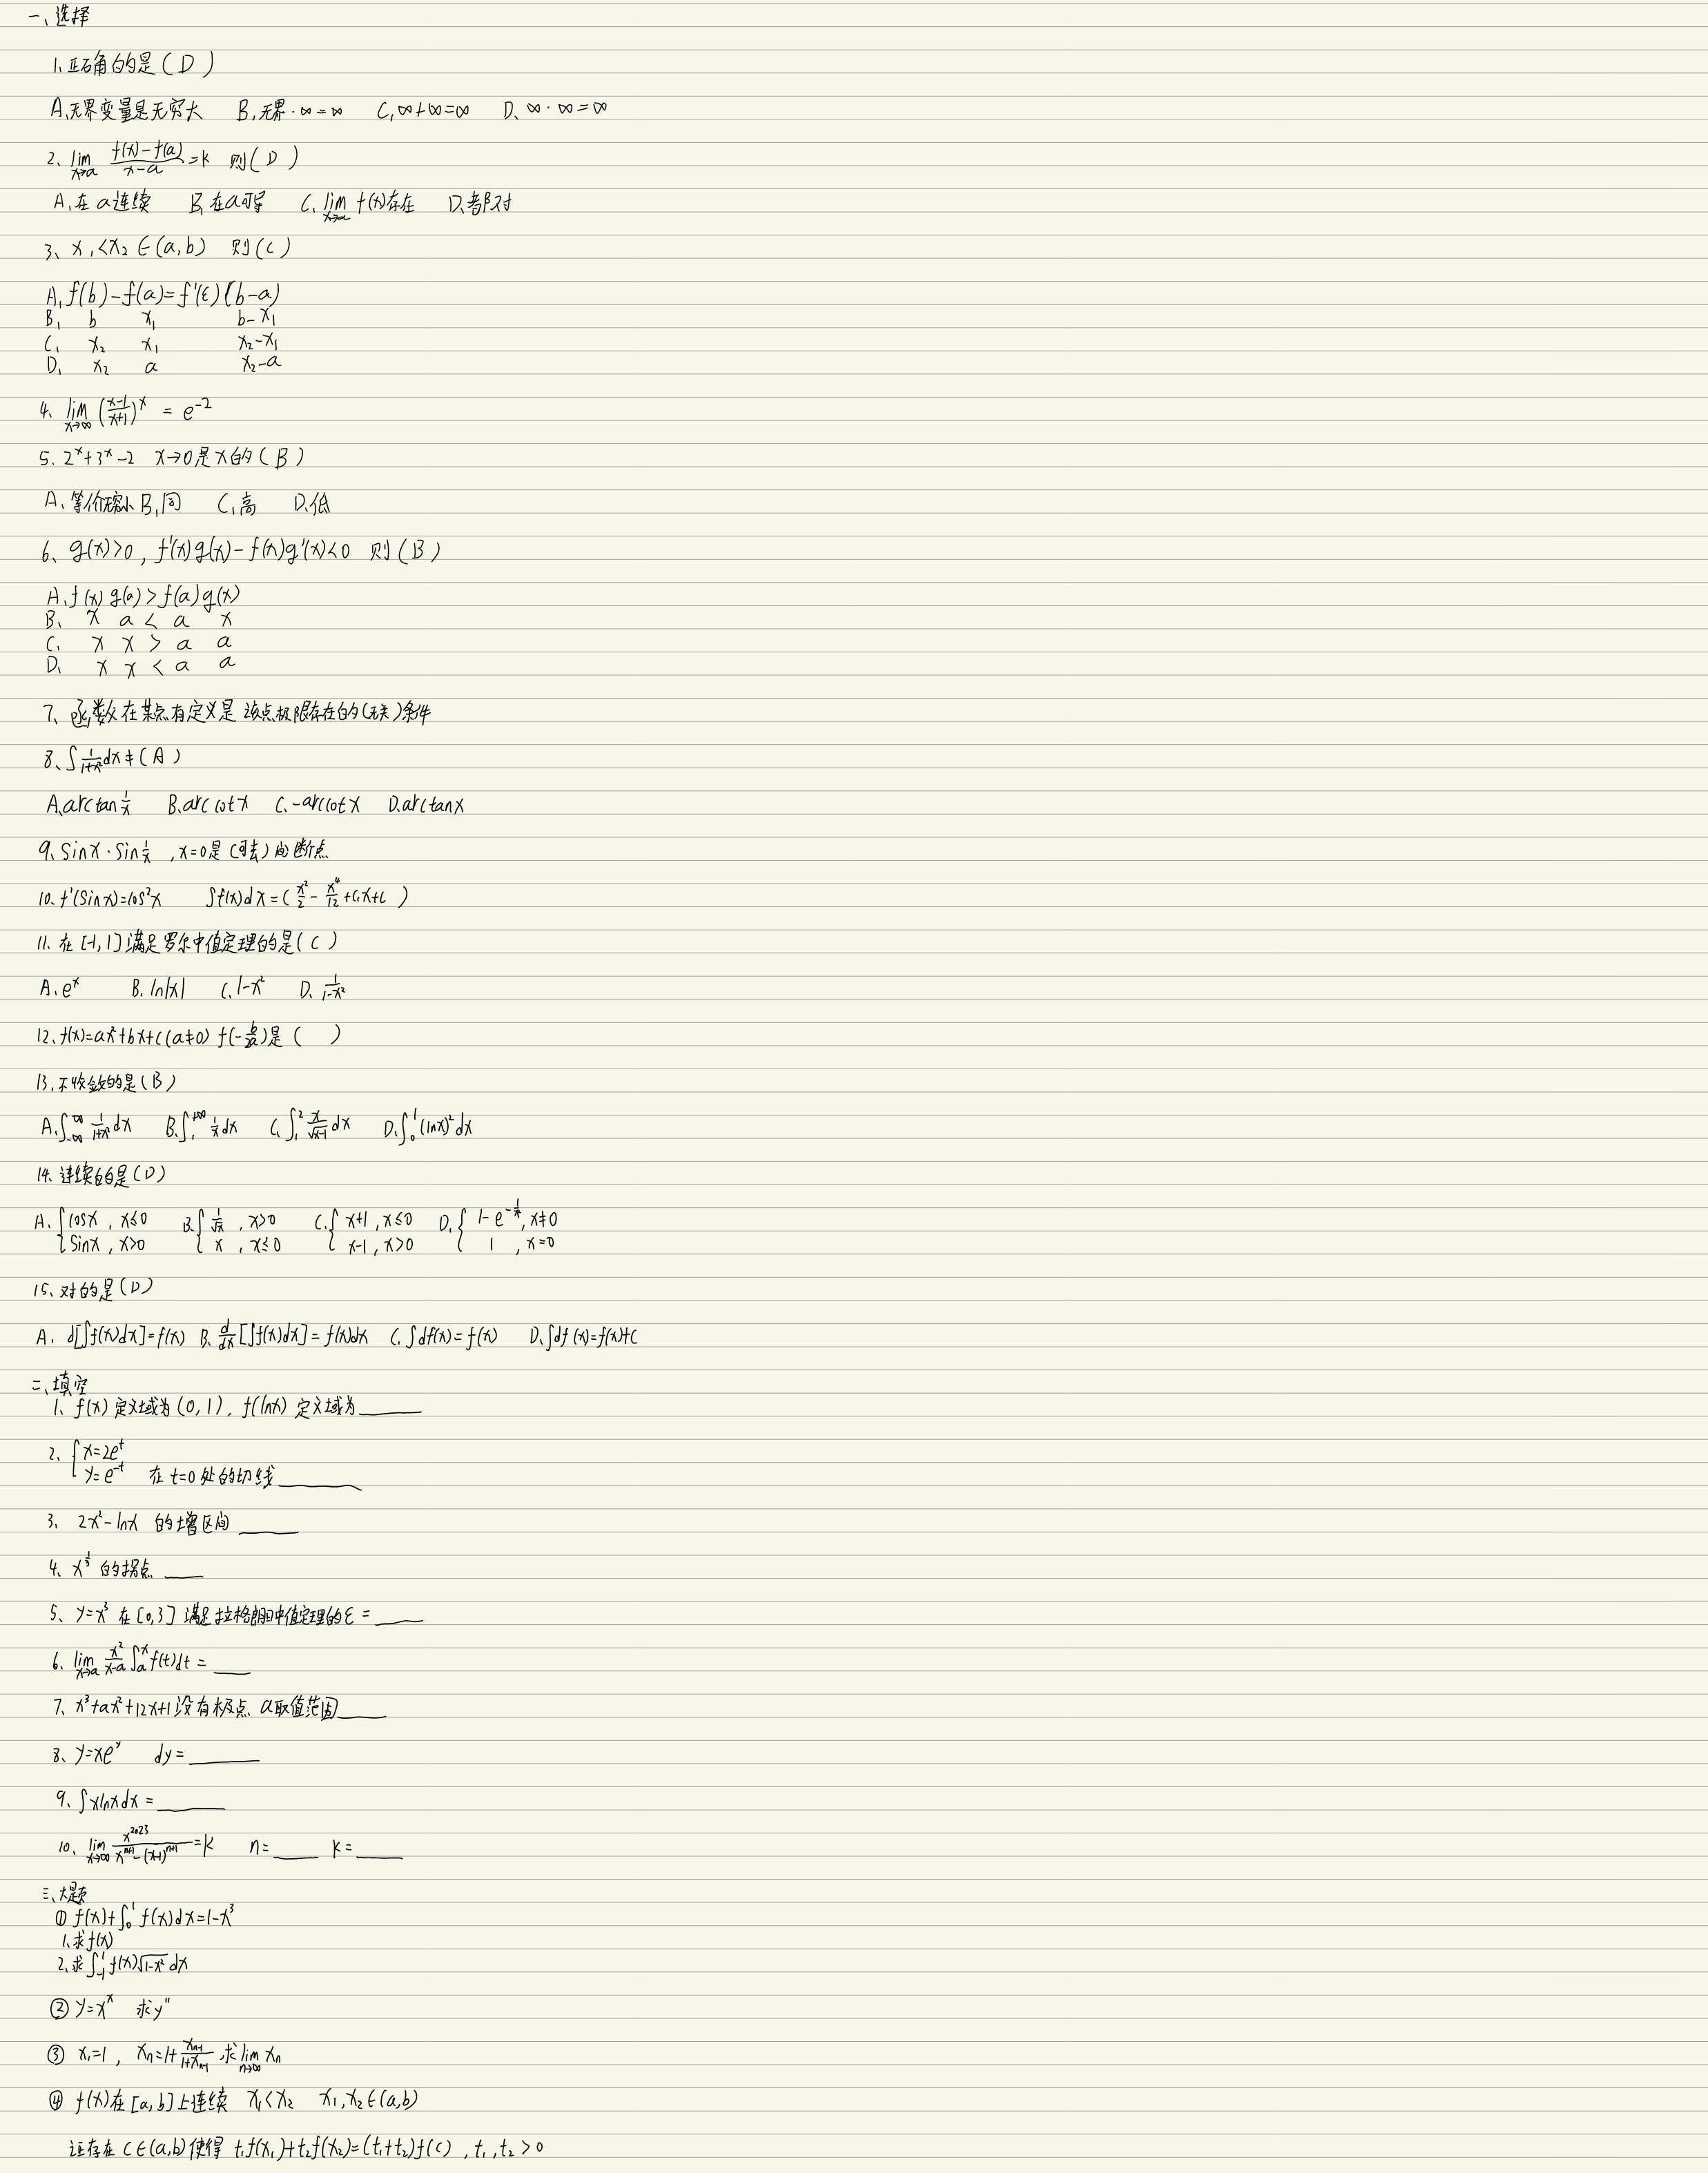 一、选择
1、正确的是(D)
A、无界变量是无穷大 B、无界·∞=∞ C、∞+∞=∞ D、∞·∞=∞
2、lim x→a (f(x)-f(a))/(x-a)=k 则(D)
A、在a连续 B、在a可导 C、lim x→a f(x)存在 D、都对
3、x₁<x₂∈(a,b) 则(C)
A、f(b)-f(a)=f'(ε)(b-a)
B、 b x₁ b-x₁
C、 x₂ x₁ x₂-x₁
D、 x₂ a x₂-a
4、lim x→∞ ((x-1)/(x+1))^x = e^-2
5、2^x+3^x-2 x→0是x的(B)
A、等价无穷小 B、同 C、高 D、低
6、g(x)>0,f'(x)g(x)-f(x)g'(x)<0 则(B)
A、f(x)g(a)>f(a)g(x)
B、 x a < a x
C、 x x > a a
D、 x x < a a
7、函数在某点有定义是该点极限存在的(无关)条件
8、∫1/(1+x²)dx≠(A)
A、arctan 1/x B、arccotx C、-arccotx D、arctanx
9、sinx·sin 1/x ,x=0是(可去)间断点
10、f'(sinx)=cos²x ∫f(x)dx=(x²/2 - x⁴/12+C₁x+C)
11、在[-1,1]满足罗尔中值定理的是(C)
A、e^x B、ln|x| C、1-x² D、1/(1-x²)
12、f(x)=ax²+bx+c(a≠0) f(-b/2a)是( )
13、不收敛的是(B)
A、∫_-∞^∞ 1/(1+x²)dx B、∫_1^+∞ 1/x dx C、∫_1^2 x/√(x-1) dx D、∫_0^1 (lnx)²dx
14、连续的是(D)
A、{cosx , x≤0 B、{1/√x , x>0 C、{x+1 , x≤0 D、{1-e^(-1/x²), x≠0
sinx , x>0 x , x≤0 x-1 , x>0 1 , x=0
15、对的是(D)
A、d[∫f(x)dx]=f(x) B、d/dx[∫f(x)dx]=f(x)dx C、∫df(x)=f(x) D、∫df(x)=f(x)+C
二、填空
1、f(x)定义域为(0,1),f(lnx)定义域为______
2、{x=2e^t
y=e^-t 在t=0处的切线______
3、2x²-lnx 的增区间______
4、x^(1/3) 的拐点____
5、y=x³在[0,3]满足拉格朗日中值定理的ε=____
6、lim x→a x²/(x-a) ∫_a^x f(t)dt=____
7、x³+ax²+12x+1没有极点、a取值范围____
8、y=xe^y dy=______
9、∫xlnxdx=______
10、lim x→∞ x^2023/(x^(n+1)-(x-1)^(n+1))=k n=____ k=____
三、大题
① f(x)+∫_0^1 f(x)dx=1-x³
1、求f(x)
2、求∫_-1^1 f(x)√(1-x²)dx
② y=x^x 求y"
③ x₁=1 , xₙ=1+xₙ₋₁/(1+xₙ₋₁),求lim n→∞ xₙ
④ f(x)在[a,b]上连续 x₁<x₂ x₁,x₂∈(a,b)
证存在c∈(a,b)使得 t₁f(x₁)+t₂f(x₂)=(t₁+t₂)f(c) ,t₁,t₂>0